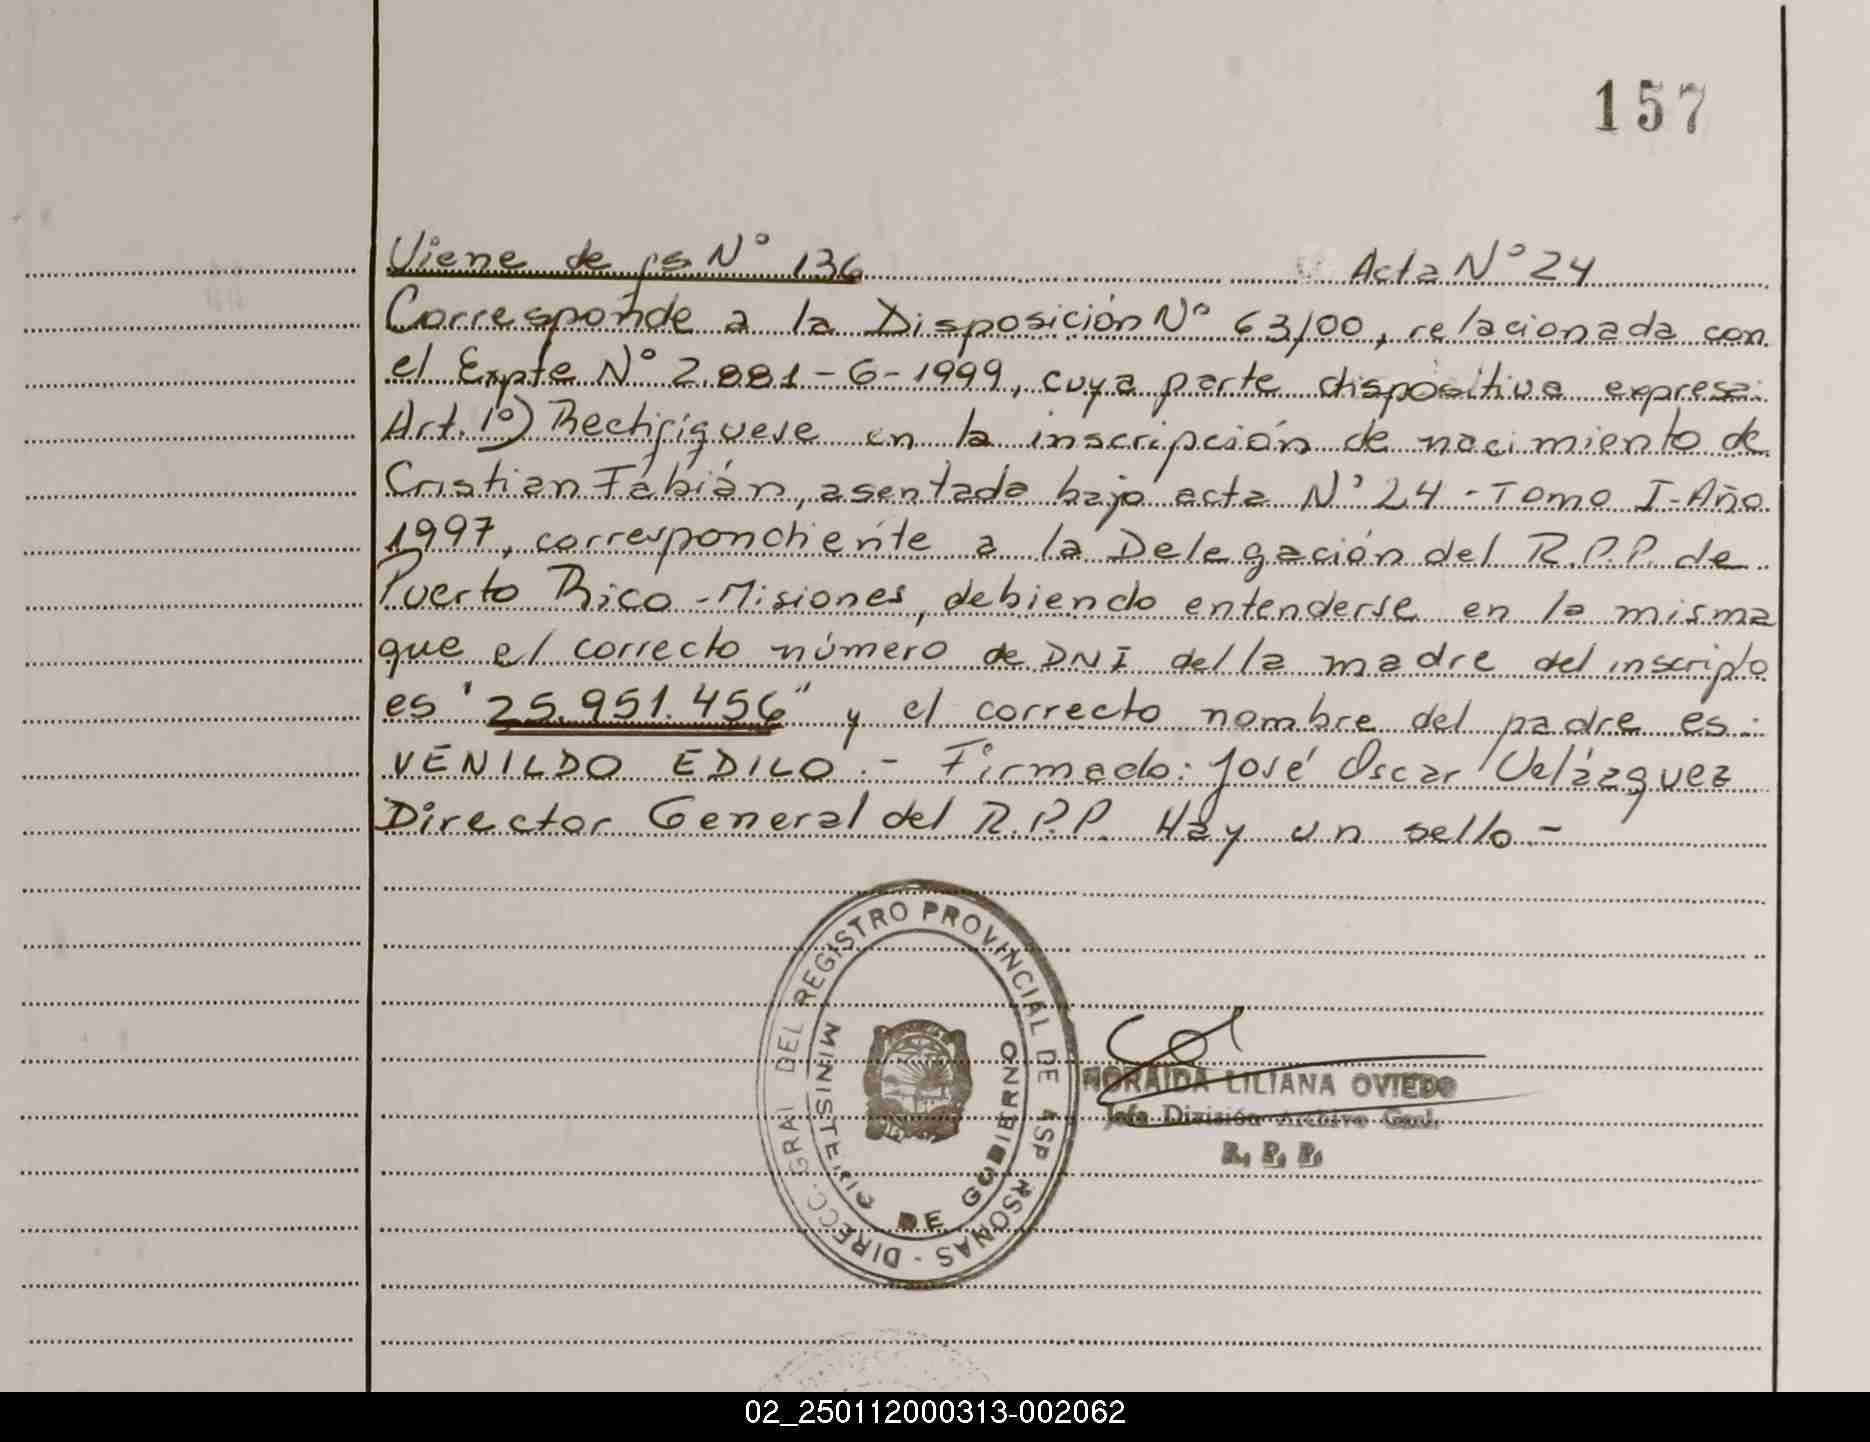 157
Viene de fs Nº 136 Acta Nº 24
Corresponde a la Disposición Nº 63/00, relacionada con
el Expte Nº 2.881-6-1999, cuya parte dispositiva expresa:
Art. 1º) Rectifíquese en la inscripción de nacimiento de
Cristian Fabián, asentada bajo acta Nº 24 - Tomo I - Año
1997, correspondiente a la Delegación del R.P.P. de
Puerto Rico - Misiones, debiendo entenderse en la misma
que el correcto número de DNI del la madre del inscripto
es "25.951.456" y el correcto nombre del padre es:
VENILDO EDILO.- Firmado: José Oscar Velázquez
Director General del R.P.P. Hay un sello.-
DIRECC. GRAL DEL REGISTRO PROVINCIAL DE LAS PERSONAS -
MINISTERIO DE GOBIERNO
LILIANA OVIEDO
Jefa División Archivo Gral.
R. P. P.
02_250112000313-002062